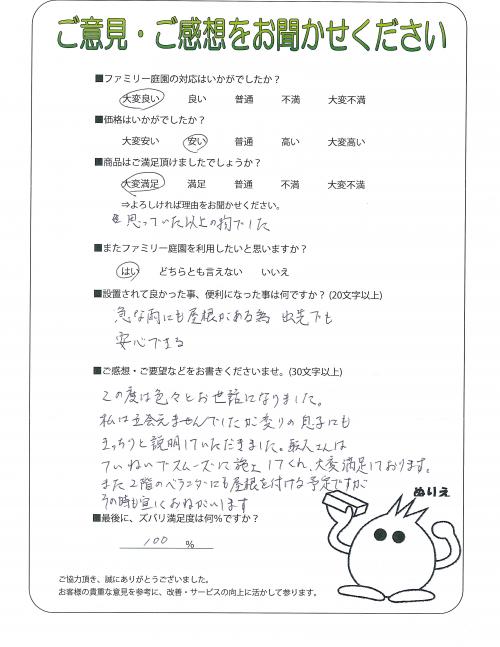 ご意見・ご感想をお聞かせください
■ファミリー庭園の対応はいかがでしたか？
大変良い　良い　普通　不満　大変不満
■価格はいかがでしたか？
大変安い　安い　普通　高い　大変高い
■商品はご満足頂けましたでしょうか？
大変満足　満足　普通　不満　大変不満
⇒よろしければ理由をお聞かせください。
思っていた以上の物でした
■またファミリー庭園を利用したいと思いますか？
はい　どちらとも言えない　いいえ
■設置されて良かった事、便利になった事は何ですか？ (20文字以上)
急な雨にも屋根がある為 出先でも
安心できる
■ご感想・ご要望などをお書きくださいませ。(30文字以上)
この度は色々とお世話になりました。
私は立会えませんでしたが変りの息子にも
きっちりと説明していただきました。職人さんは
ていねいでスムーズに施工してくれ、大変満足しております。
また2階のベランダにも屋根を付ける予定ですが
その時も宜しくおねがいします
■最後に、ズバリ満足度は何％ですか？
100 ％
ぬりえ
ご協力頂き、誠にありがとうございました。
お客様の貴重な意見を参考に、改善・サービスの向上に活かして参ります。